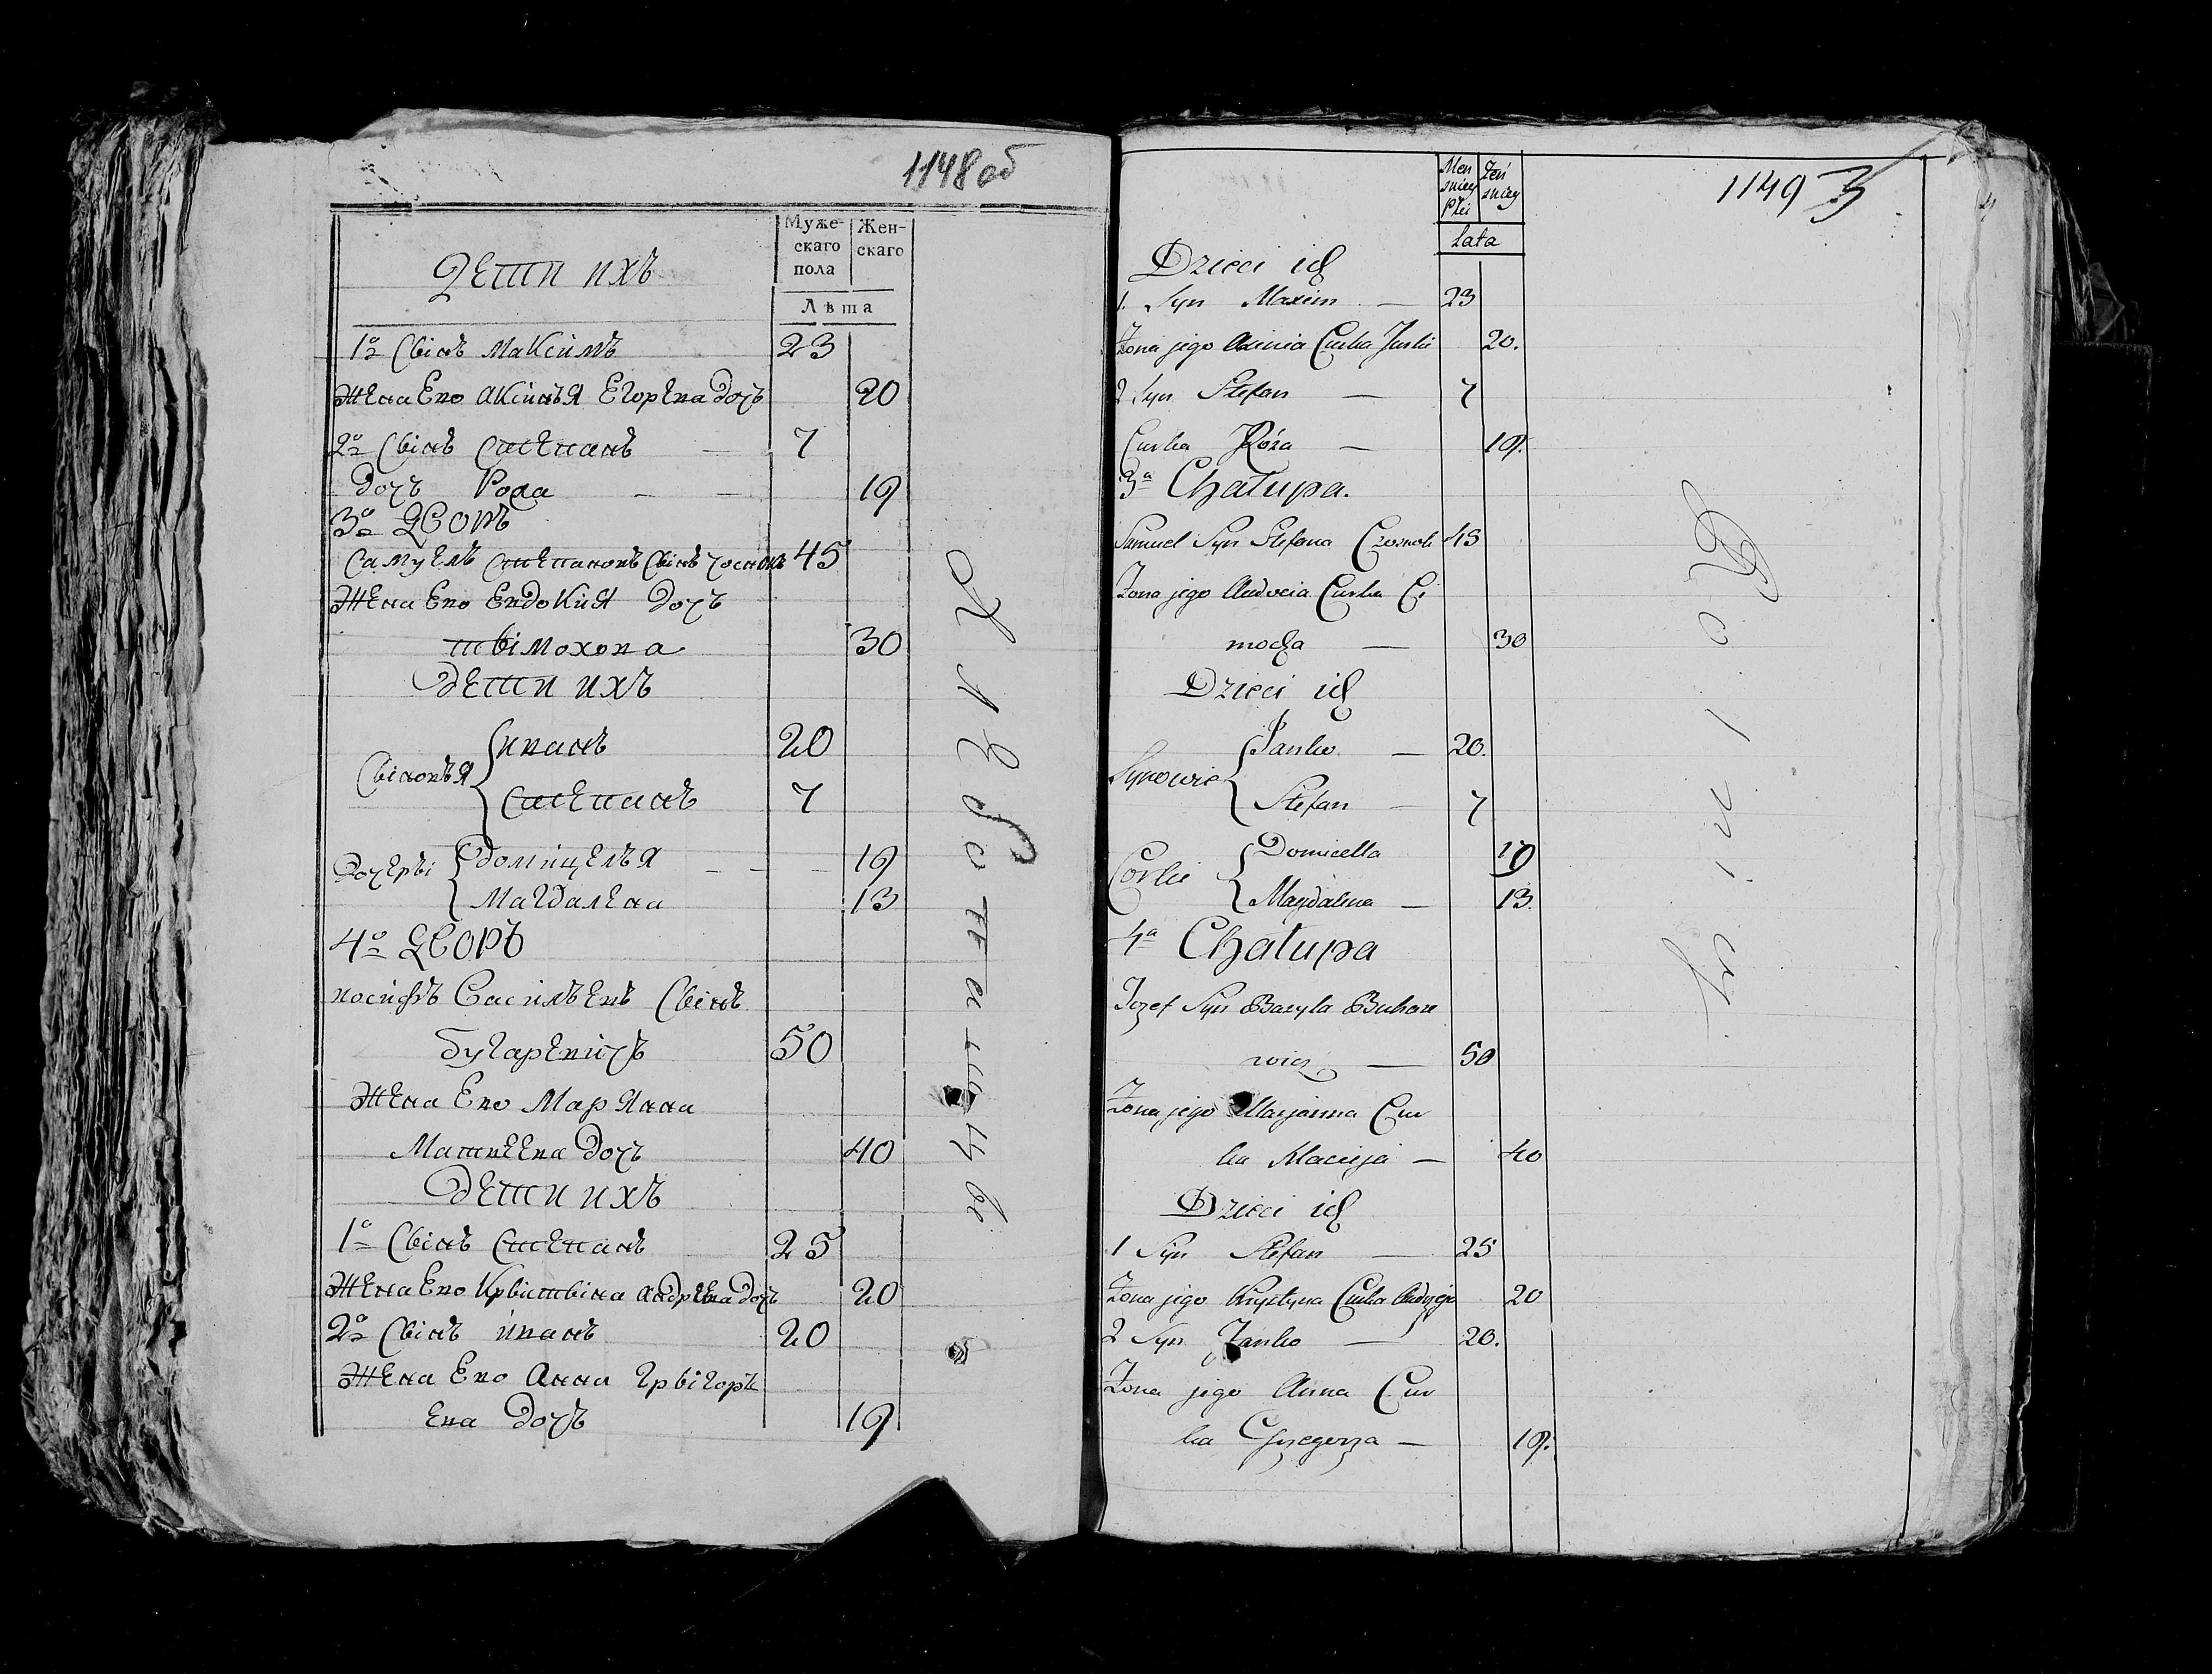 1148 об
Муже-
скаго
пола
Жен-
скаго
Лѣта
Дети ихъ
1о Свінъ Максимъ 23
Жена Ево Аксинья Егорева дочь 20
2о Свінъ Степанъ — 7
дочь Роза — — 19
3о Дворъ
Самуель Степановъ Свінъ 45
Жена Ево Евдокия дочь
твімохова 30
дети ихъ
Свіновья { иванъ 20
Степанъ 7
Дочерві { Доміцелья — — — 19
Магдалена 13
4о Дворъ
иосифъ Васильевъ Свінъ
бухаревичъ 50
Жена Ево Марянна
Матвеева дочь 40
дети ихъ
1о Свінъ Степанъ 25
Жена Ево Крвіствіна Андреева дочь 20
2о Свінъ иванъ 20
Жена Ево Анна Грвігорь
ева дочь 19
1149 3
Men
skiey
Płci
Zeń
skiey
Lata
Dzieci ich
1. Syn Maxim — 23
Zona jego Axinia Curka Jurki 20.
2 Syn Stefan — 7
Curka Róza — 19.
3a Chałupa.
Samuel Syn Stefana 45
Zona jego Audocia Curka Ci
mocha — 30
Dzieci ich
Synowie { Janko — 20.
Stefan — 7
Corki { Domicella 19
Magdalena — 13.
4a Chałupa
Jozef Syn Bazyla Buhare
wicz — 50
Zona jego Marjanna Cur
ka Macieja — 40
Dzieci ich
1 Syn Stefan — 25
Zona jego Krystyna Curka Andrzeja 20
2 Syn Janko — 20.
Zona jego Anna Cur
ka Grzegorza — 19.